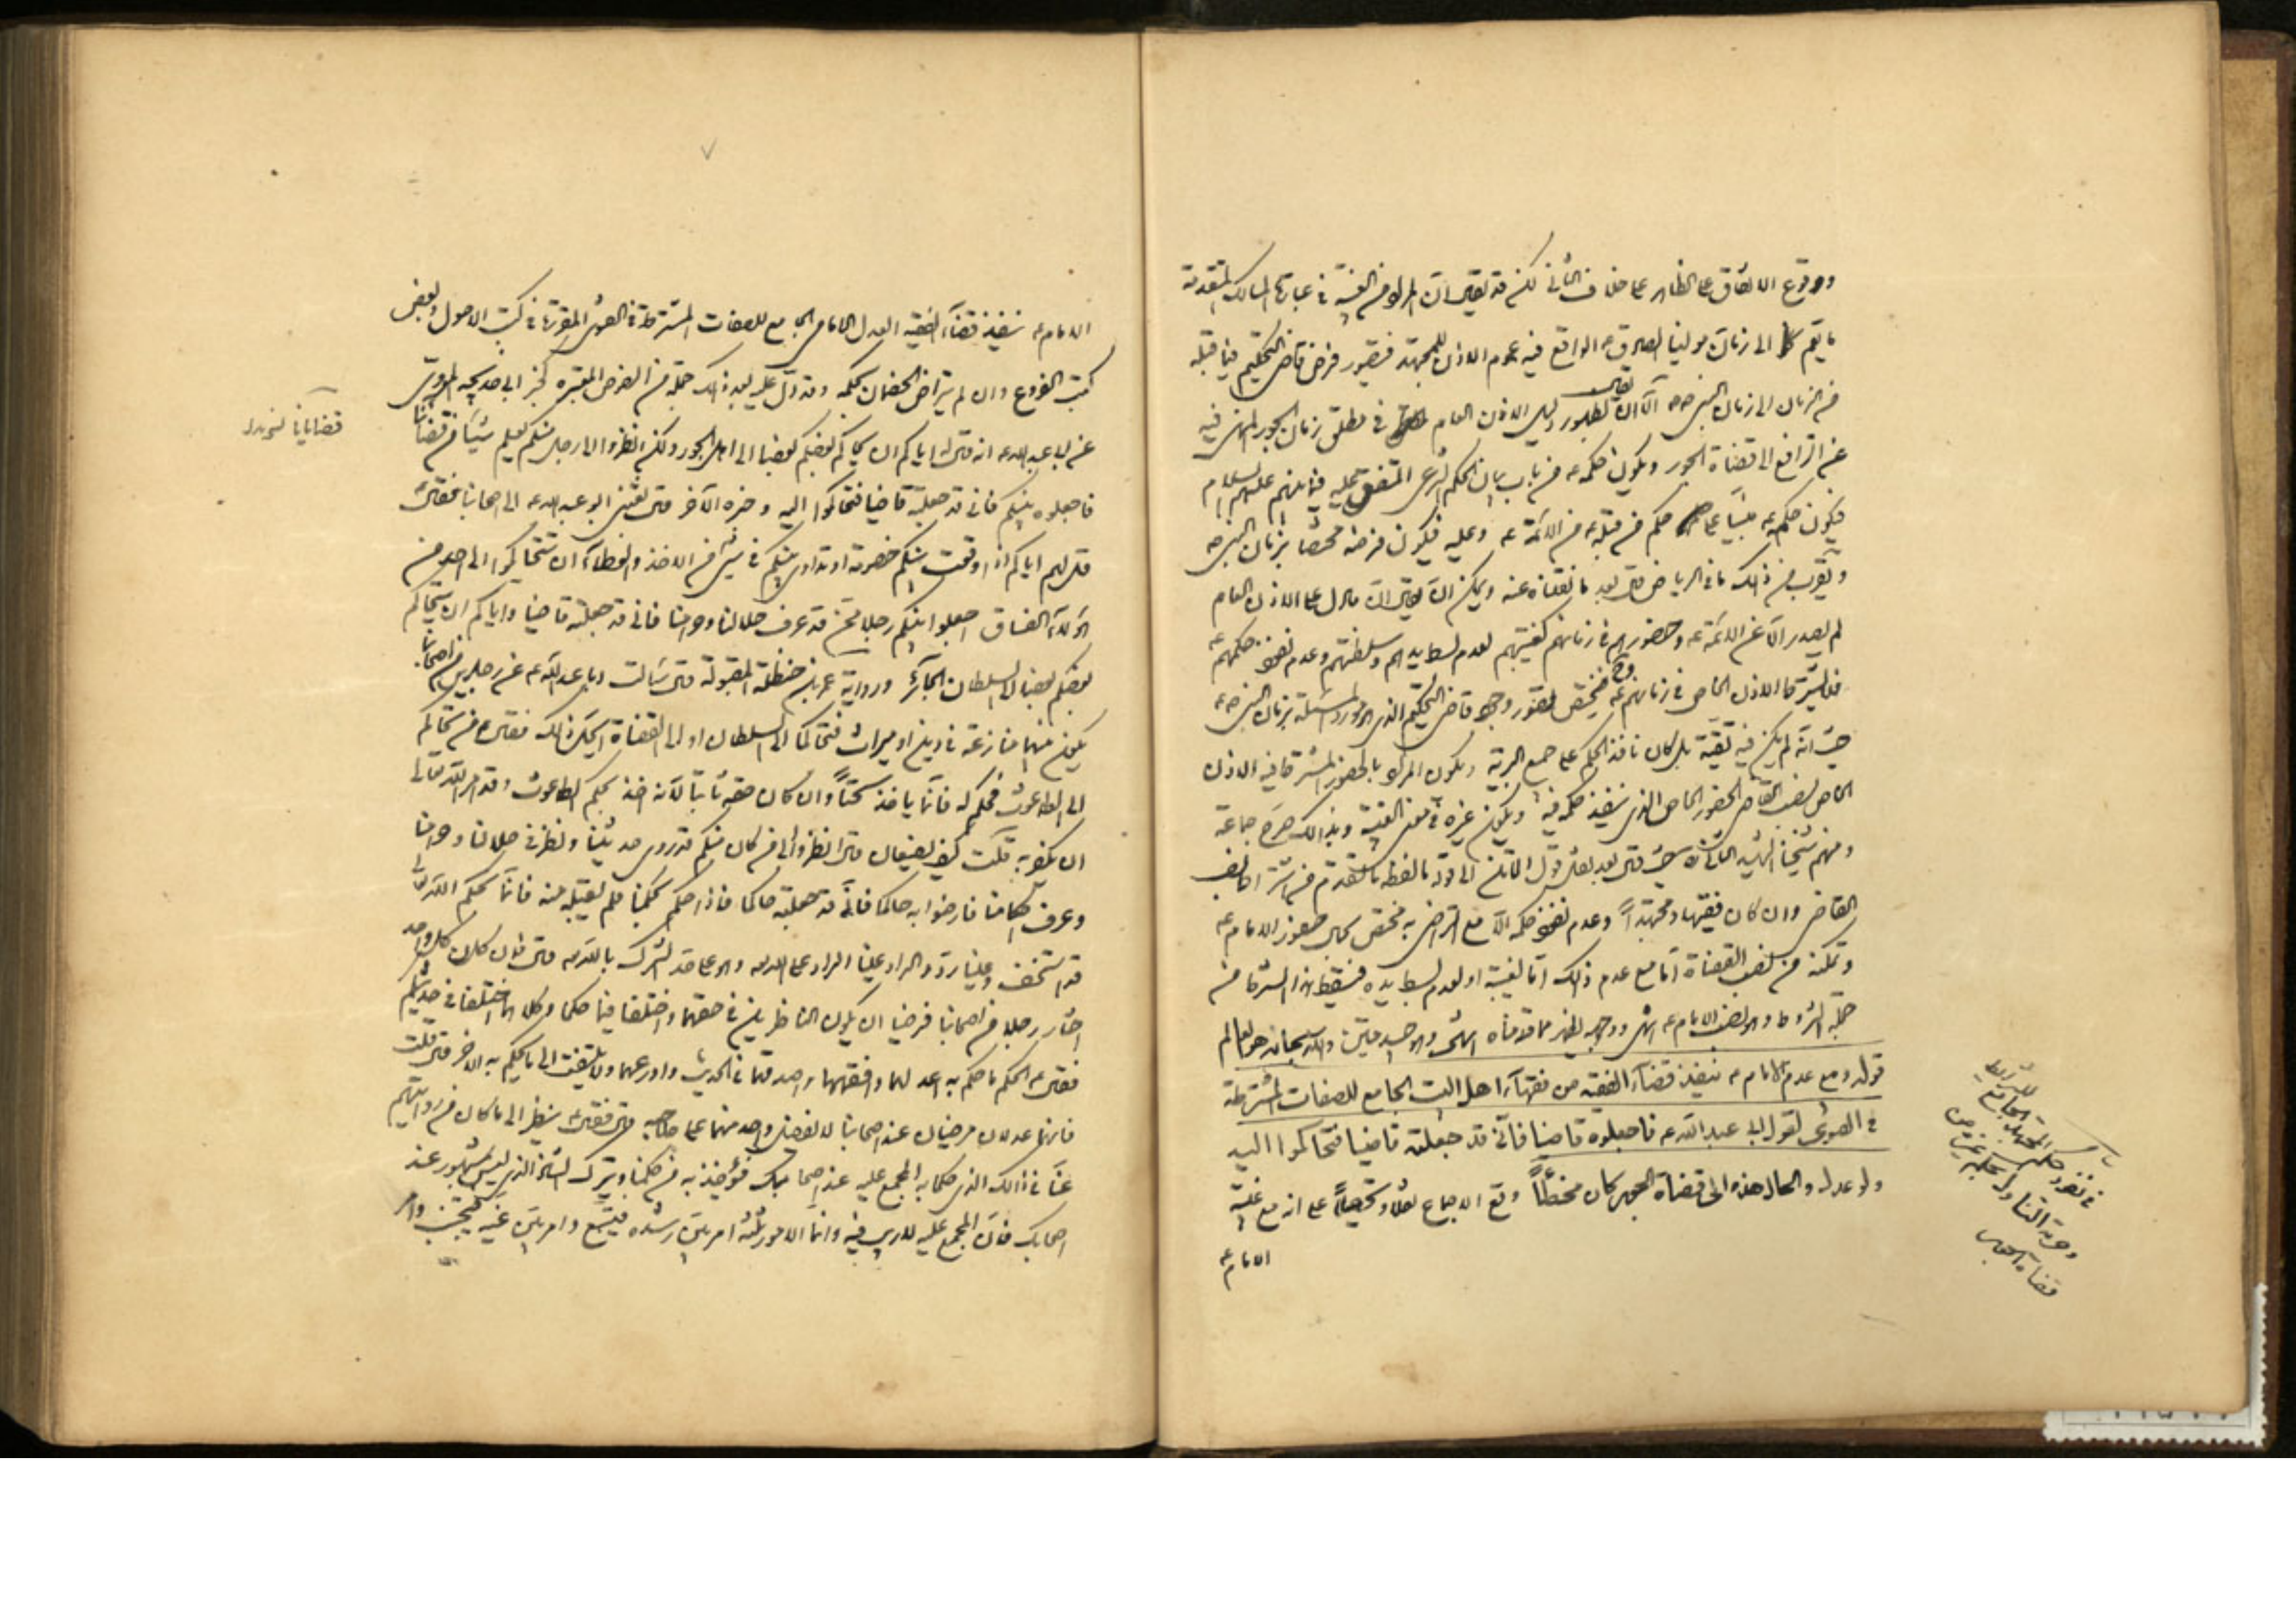 ووقوع الاتفاق على الظاهر على خلاف الثاني لكن قد يقال ان المراد من الغيبة في عبارة المسالك المتقدمة
ما يعم الى زمان مولينا الصادق ع الواقع فيه عموم الاذن للمجتهد فيتصور فرض قاضي التحكيم فيما قبله
من الزمان الى زمان النبي ص الا ان يقال بظهور دليل الاذن العام في مطلق زمان الجور المنهي فيه
عن الترافع الى قضاة الجور ويكون حكمه ع من باب بيان الحكم الشرعي المتفق عليه فيما بينهم عليهم السلام
فيكون حكمه ع مبنيا على حكم من قبله ع من الائمة ع وعليه فيكون فرضه مختصا بزمان النبي ص
ويقرب من ذلك ما في الرياض قال بعد ما نقلناه عنه ويمكن ان يقال ان ما دل على الاذن العام
لم يصدر الا عن الائمة ع وحضورهم في زمانهم كغيبتهم لعدم بسط يدهم وسلطنتهم وعدم نفوذ حكمهم ع
فلا يشترط الاذن الخاص في زمانهم ع وح فيختص تصور وجود قاضي التحكيم الذي هو مورد المسئلة بزمان النبي ص
حيث انه لم يكن فيه تقية بل كان نافذ الحكم على جميع البرية ويكون المراد بالحضور المشترط فيه الاذن
الخاص لنصب القاضي الحضور الخاص الذي ينفذ حكمه فيه ويكون غيره في معنى الغيبة وبذلك صرح جماعة
ومنهم شيخنا الشهيد الثاني ره حيث قال بعد نقل قول الماتن الى قوله ما لفظه ما تقدم من اشتراط نصب
القاضي وان كان فقيها ومجتهدا وعدم نفوذ حكمه الا مع التراضي به مختص بحال حضور الامام ع
وتمكنه من نصب القضاة اما مع عدم ذلك اما لغيبة او لعدم بسط يده فيسقط هذا الشرط من
جملة الشروط وهو نصب الامام ع انتهى ووجهه يظهر مما قدمناه انتهى وهو جيد متين والله سبحانه هو العالم
قوله ومع عدم الامام ع ينفذ قضاء الفقيه من فقهاء اهل البيت الجامع للصفات المشترطة
في الفتوى لقول ابي عبد الله ع فاجعلوه قاضيا فاني قد جعلته قاضيا فتحاكموا اليه
ولو عدل والحال هذه الى قضاة الجور كان مخطئا وقع الاجماع نقلا وتحصيلا على انه مع غيبة
الامام ع
في نفوذ حكم المجتهد الجامع للشرايط
وحرمة التناول بحكم غيره من
قضاة الجور
الامام ع ينفذ قضاء الفقيه العدل الامامي الجامع للصفات المشترطة في الفتوى المقررة في كتب الاصول وبعض
كتب الفروع وان لم يتراض الخصمان بحكمه وقد دل عليه بعد ذلك جملة من النصوص المعتبرة كخبر ابي خديجة المروي
عن ابي عبد الله ع انه قال اياكم ان يحاكم بعضكم بعضا الى اهل الجور ولكن انظروا الى رجل منكم يعلم شيئا من قضائنا
فاجعلوه بينكم فاني قد جعلته قاضيا فتحاكموا اليه وخبره الآخر قال بعثني ابو عبد الله ع الى اصحابنا فقال
قل لهم اياكم اذا وقعت بينكم خصومة او تداري بينكم في شيء من الاخذ والعطاء ان تتحاكموا الى احد من
هؤلاء الفساق اجعلوا بينكم رجلا ممن قد عرف حلالنا وحرامنا فاني قد جعلته قاضيا واياكم ان يتحاكم
بعضكم بعضا الى السلطان الجائر ورواية عمر بن حنظلة المقبولة قال سالت ابا عبد الله ع عن رجلين من اصحابنا
يكون بينهما منازعة في دين او ميراث فتحاكما الى السلطان او الى القضاة ايحل ذلك فقال ع من تحاكم
الى الطاغوت فحكم له فانما ياخذ سحتا وان كان حقه ثابتا لانه اخذ بحكم الطاغوت وقد امر الله تعالى
ان يكفر به قلت كيف يصنعان قال انظروا الى من كان منكم قد روى حديثنا ونظر في حلالنا وحرامنا
وعرف احكامنا فارضوا به حاكما فاني قد جعلته حاكما فاذا حكم بحكمنا فلم يقبله منه فانما بحكم الله تعالى
قد استخف وعلينا رد والراد علينا الراد على الله وهو على حد الشرك بالله قال فان كان كل واحد
اختار رجلا من اصحابنا فرضيا ان يكون الناظرين في حقهما واختلفا فيما حكما وكلاهما اختلفا في حديثكم
فقال ع الحكم ما حكم به اعدلهما وافقههما واصدقهما في الحديث واورعهما ولا يلتفت الى ما يحكم به الاخر قال قلت
فانهما عدلان مرضيان عند اصحابنا لا يفضل واحد منهما على صاحبه قال فقال ينظر الى ما كان من روايتهم
عنا في ذلك الذي حكما به المجمع عليه عند اصحابك فيؤخذ به من حكمنا ويترك الشاذ الذي ليس بمشهور عند
اصحابك فان المجمع عليه لا ريب فيه وانما الامور ثلثة امر بين رشده فيتبع وامر بين غيه فيجتنب وامر
قضايانا